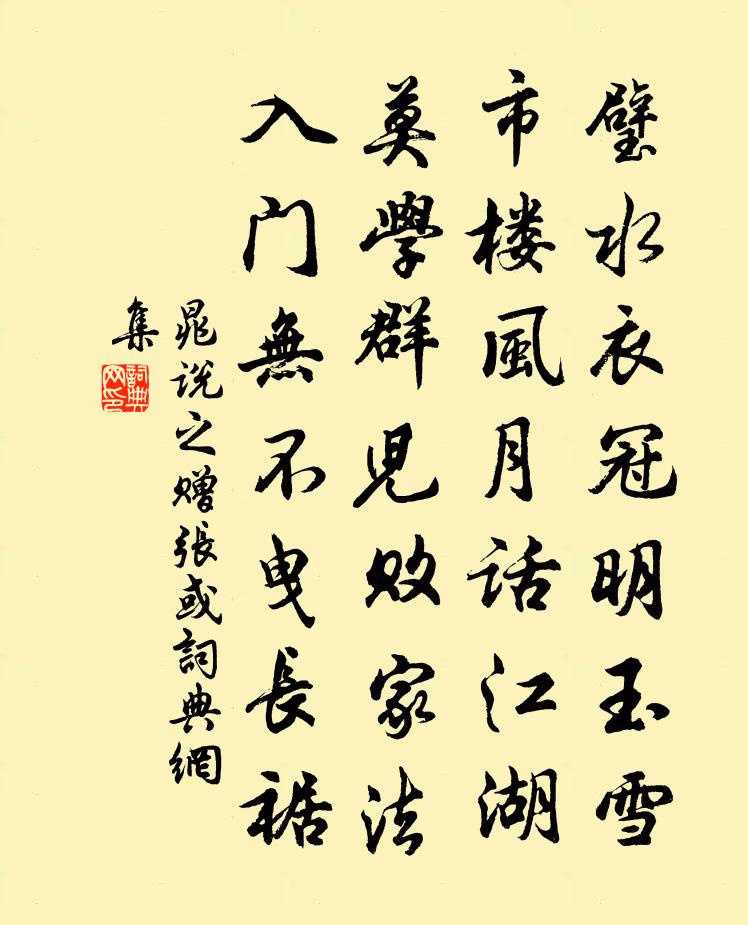 璧水衣冠明玉雪
市楼風月話江湖
莫學群児敗家法
入门無不曳長裾
晁说之赠張或詞典網
集
詞典
网印